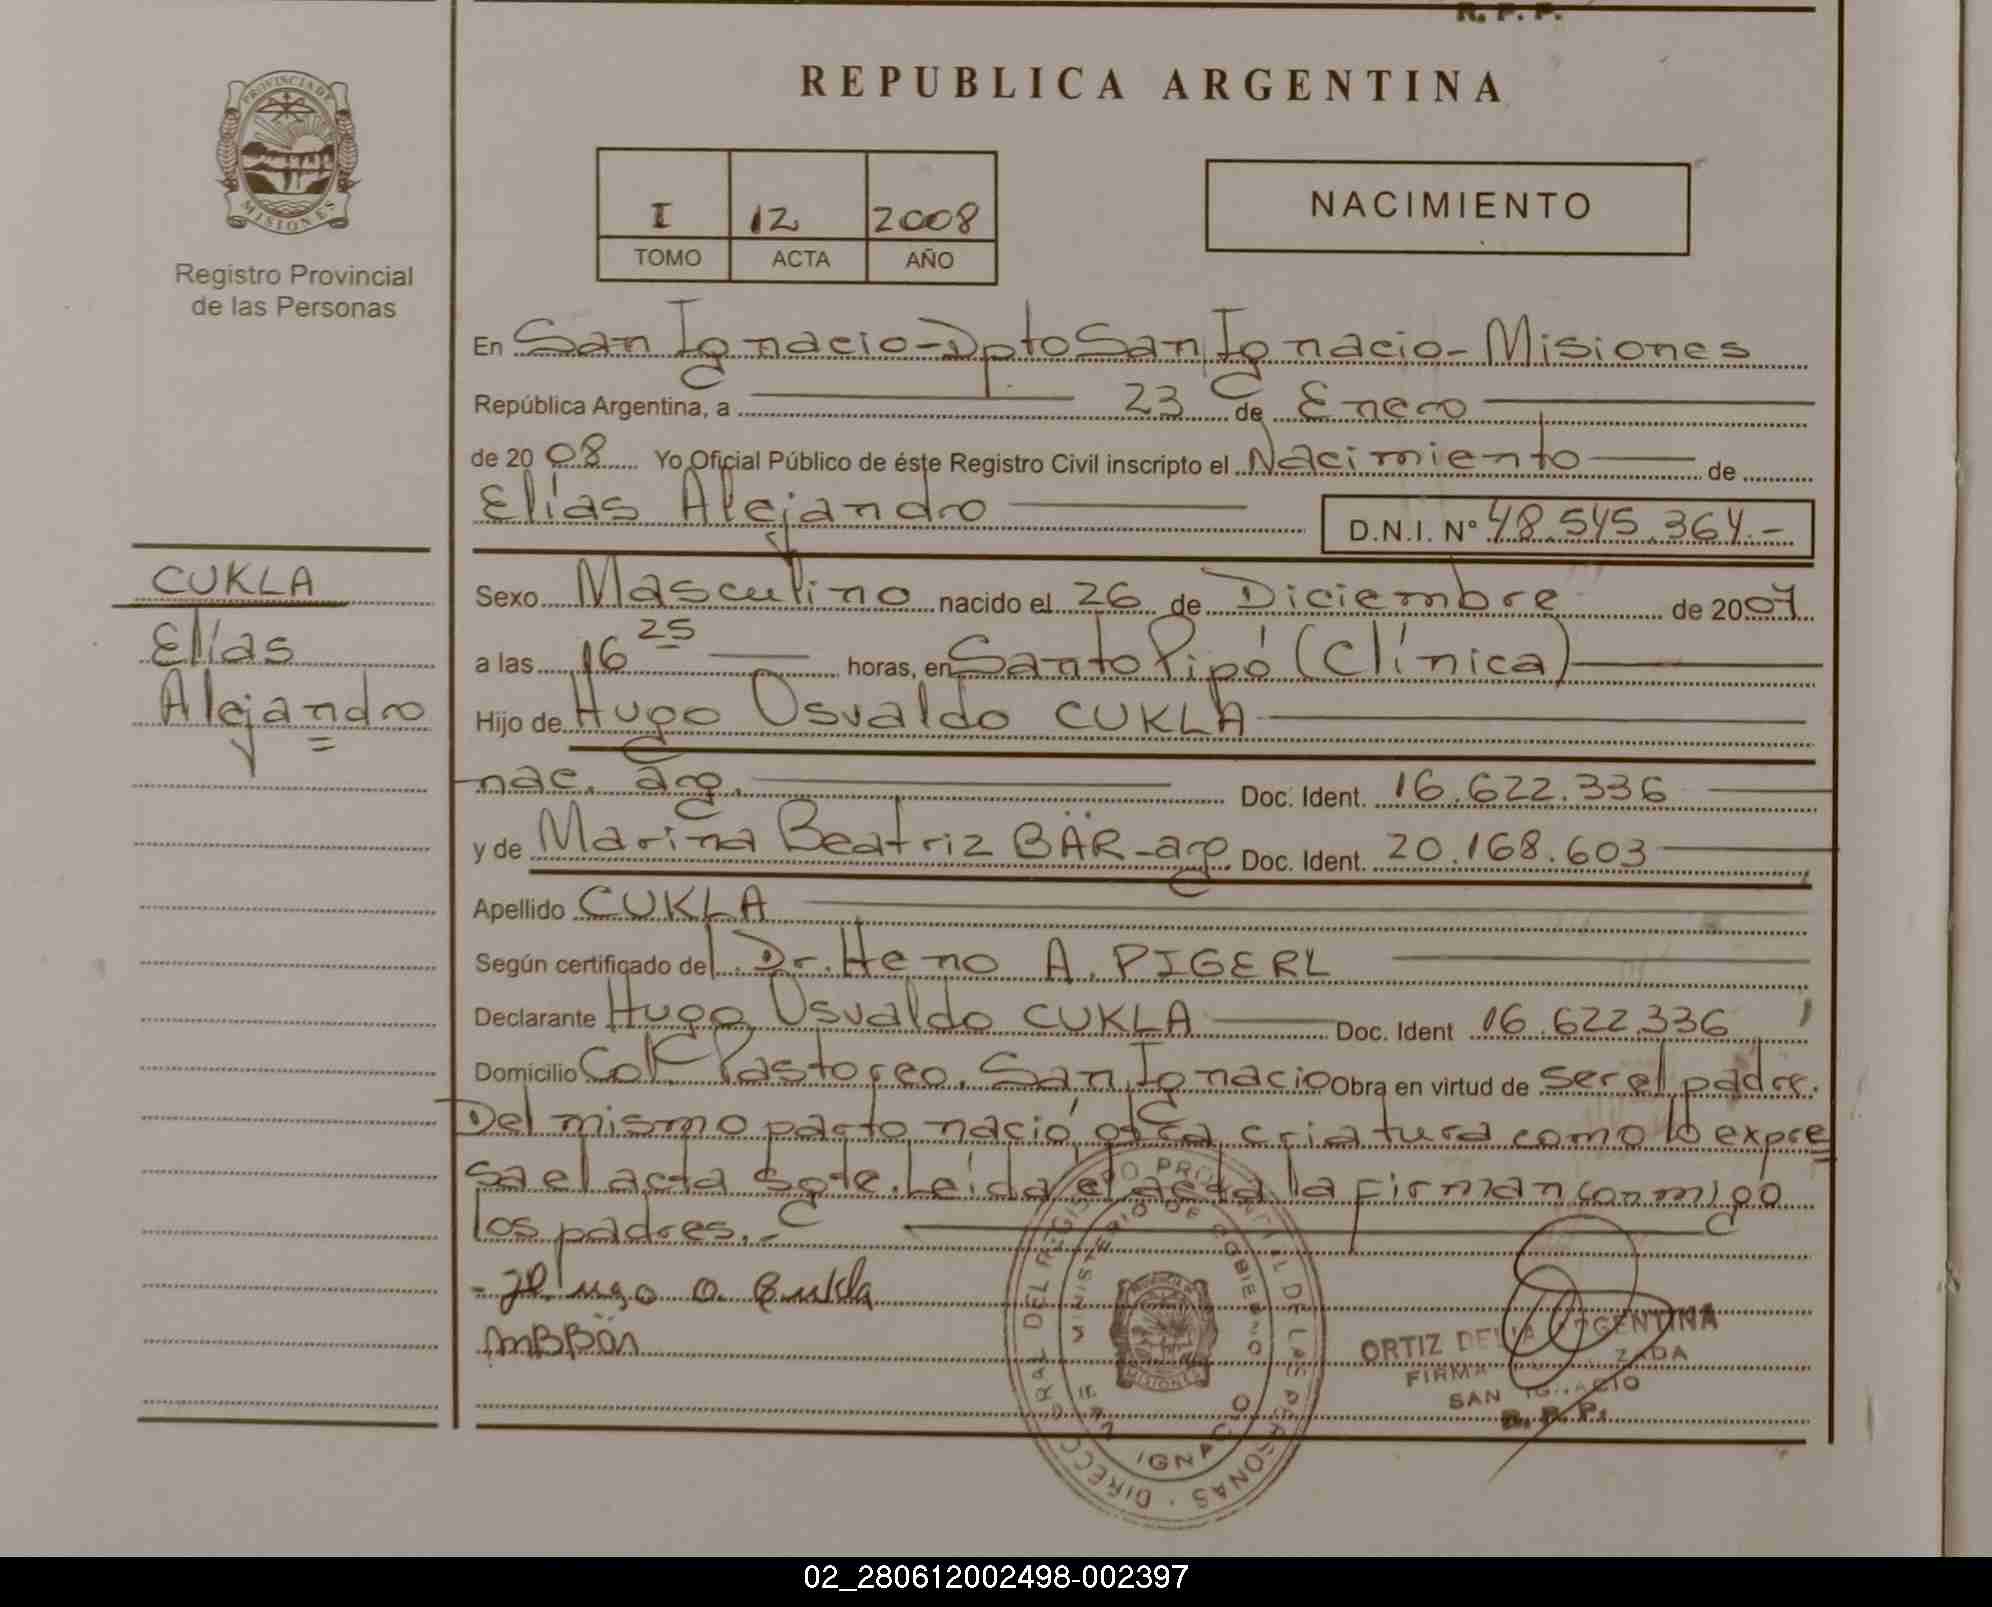 R. P. P.
REPUBLICA ARGENTINA
PROVINCIA DE
MISIONES
Registro Provincial
de las Personas
I 12 2008
TOMO ACTA AÑO
NACIMIENTO
En San Ignacio - Dpto San Ignacio - Misiones
República Argentina, a 23 de Enero
de 2008 Yo Oficial Público de éste Registro Civil inscripto el Nacimiento de
Elías Alejandro D.N.I. Nº 48.545.364.-
CUKLA
Elías
Alejandro
Sexo Masculino nacido el 26 de Diciembre de 2007
a las 16 25 horas, en Santo Pipó (Clínica)
Hijo de Hugo Osvaldo CUKLA
nac. arg. Doc. Ident. 16.622.336
y de Marina Beatriz BÄR - arg. Doc. Ident. 20.168.603
Apellido CUKLA
Según certificado del Dr. Heno A. PIGERL
Declarante Hugo Osvaldo CUKLA Doc. Ident 16.622.336
Domicilio Col. Pastoreo. San Ignacio Obra en virtud de ser el padre.
Del mismo parto nació otra criatura como lo expre
sa el acta sgte. Leída el acta, la firman conmigo
los padres.-
- Hugo O. Cukla
MBBär
DIRECC RAL DEL REGISTRO PROVINCIAL DE LAS PERSONAS
MINISTERIO DE GOBIERNO
MISIONES
IGNACIO
ORTIZ DELIA ARGENTINA
FIRMA ZADA
SAN IGNACIO
R. P. P.
02_280612002498-002397